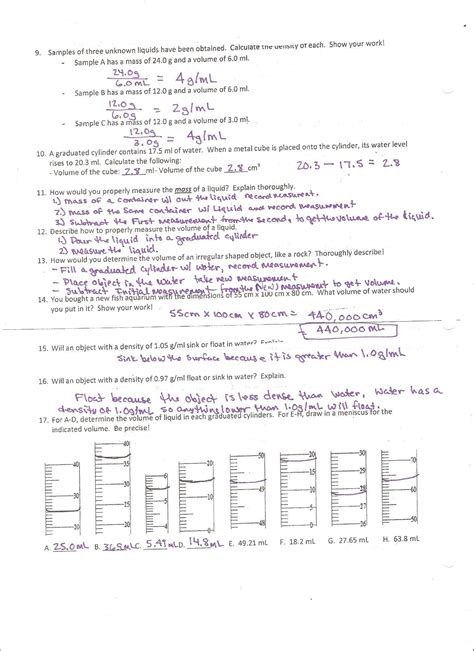 9. Samples of three unknown liquids have been obtained. Calculate the density of each. Show your work!
- Sample A has a mass of 24.0 g and a volume of 6.0 ml.
24.0g / 6.0 mL = 4g/mL
- Sample B has a mass of 12.0 g and a volume of 6.0 ml.
12.0g / 6.0g = 2g/mL
- Sample C has a mass of 12.0 g and a volume of 3.0 ml.
12.0g / 3.0g = 4g/mL
10. A graduated cylinder contains 17.5 ml of water. When a metal cube is placed onto the cylinder, its water level
rises to 20.3 ml. Calculate the following:
- Volume of the cube: 2.8 ml- Volume of the cube 2.8 cm³ 20.3 - 17.5 = 2.8
11. How would you properly measure the mass of a liquid? Explain thoroughly.
1) mass of a container w/ out the liquid record
2) mass of the same container w/ Liquid and record measurement
3) Subtract the First measurement from the Second, to get the volume of the liquid.
12. Describe how to properly measure the volume of a liquid.
1) Pour the liquid into a graduated cylinder
2) measure the liquid.
13. How would you determine the volume of an irregular shaped object, like a rock? Thoroughly describe!
- Fill a graduated cylinder w/ water, record measurement.
- Place object in the water take new measurement
- Subtract Initial measurement from the New measurement to get volume.
14. You bought a new fish aquarium with the dimensions of 55 cm x 100 cm x 80 cm. What volume of water should
you put in it? Show your work!
55cm x 100cm x 80cm = 440,000 cm³
440,000 mL
15. Will an object with a density of 1.05 g/ml sink or float in water?
Sink below the surface because it is greater than 1.0g/mL
16. Will an object with a density of 0.97 g/ml float or sink in water? Explain.
Float because the object is less dense than water, water has a
density of 1.0g/mL so anything lower than 1.0g/mL will float.
17. For A-D, determine the volume of liquid in each graduated cylinders. For E-H, draw in a meniscus for the
indicated volume. Be precise!
40 30 20
40 35 30 25 20 15 10
6 4
20 10
50 49 48
20 10
30 29 28 27 26
60 50
A. 25.0 mL B. 36.5 mL C. 5.49 mL D. 14.8 mL E. 49.21 mL F. 18.2 mL G. 27.65 mL H. 63.8 mL